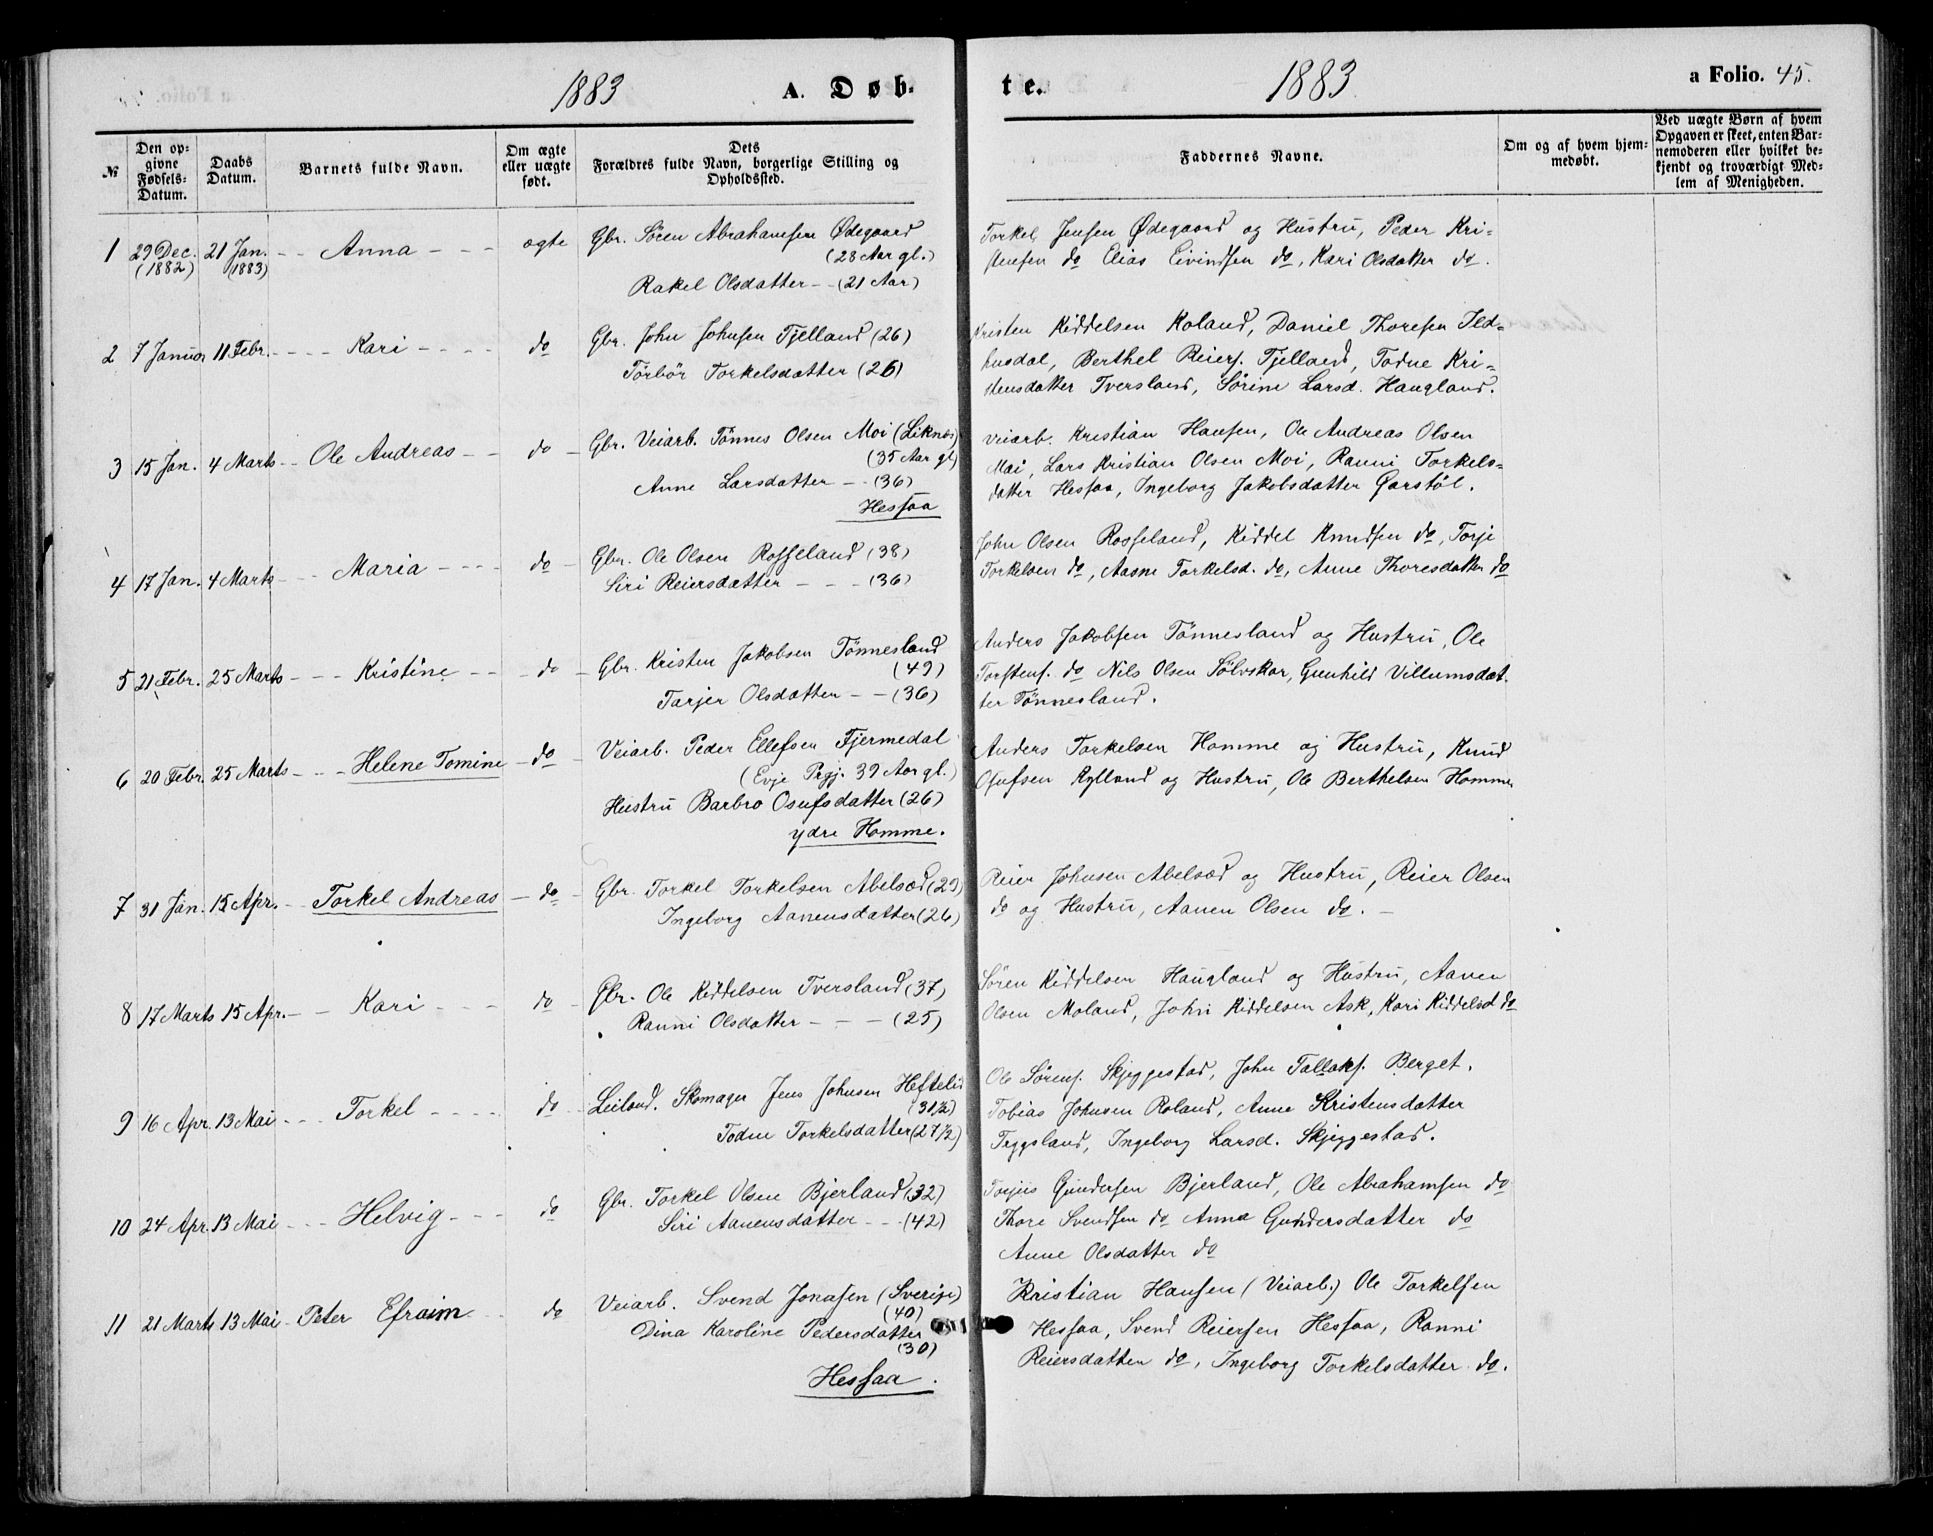 1883 A. Døb- te. 1883 a Folio. 45.
№
Den op-
givne
Fødsels-
Datum.
Daabs
Datum.
Barnets fulde Navn.
Om ægte
eller uægte
født.
Dets
Forældres fulde Navn, borgerlige Stilling og
Opholdssted.
Faddernes Navne.
Om og af hvem hjem-
medøbt.
Ved uægte Børn af hvem
Opgaven er skeet, enten Bar-
nemoderen eller hvilket be-
kjendt og troværdigt Med-
lem af Menigheden.
1 29 Dec. 21 Jan. - - Anna - - - ægte Gbr. Sören Abrahamsen Ødegaard
(1882) (1883) (28 Aar gl.)
Rakel Olsdatter - - (21 Aar)
Torkel Jensen Ødegaard og Hustru, Peder Kri-
stensen do Elias Eivindsen do, Kari Olsdatter do.
2 7 Januar 11 Febr. - - - - Kari - - - - do Gbr. John Johnsen Fjelland (26)
Törbör Torkelsdatter (26)
Kristen Kiddelsen Roland, Daniel Thoresen Ild-
husdal, Berthel Reiers. Fjelland, Todne Kri-
stensdatter Tversland, Sörine Larsd. Haugland.
3 15 Jan. 4 Marts - - Ole Andreas - - do - Gbr. Veiarb. Tönnes Olsen Moi (Liknes)
(35 Aar gl)
Anne Larsdatter - - (36)
Hessaa
Veiarb. Kristian Hansen, Ole Andreas Olsen
Moi, Lars Kristian Olsen Moi, Ranni Torkels-
datter Hessaa, Ingeborg Jakobsdatter Garstöl.
4 17 Jan. 4 Marts - - - Maria - - - - do - Gbr. Ole Olsen Rosseland (38)
Siri Reiersdatter - - - (36)
John Olsen Rosseland, Kiddel Knudsen do, Torje
Torkelsen do, Aasne Torkelsd. do, Anne Thoresdatter do
5 21 Febr. 25 Marts - - - Kristine - - - do - Gbr. Kristen Jakobsen Tönnesland
(49)
Tarjer Olsdatter - - (36)
Anders Jakobsen Tönnesland og Hustru, Ole
Torstens. do Nils Olsen Sölvskar, Gunhild Villumsdat-
ter Tönnesland.
6 20 Febr. 25 Marts - - - Helene Tomine - do - Veiarb. Peder Ellefsen Fjermedal
(Evje Prgj. 39 Aar gl.)
Hustru Barbro Osufsdatter (26)
ydre Homme.
Anders Torkelsen Homme og Hustru, Knud
Osufsen Rylland og Hustru, Ole Berthelsen Homme
7 31 Jan. 15 Apr. - Torkel Andreas - do - Gbr. Torkel Torkelsen Abelsæd (29)
Ingeborg Aanensdatter (26)
Reier Johnsen Abelsæd og Hustru, Reier Olsen
do og Hustru, Aanen Olsen do. -
8 17 Marts 15 Apr. - - Kari - - - do - Gbr. Ole Kiddelsen Tversland (37)
Ranni Olsdatter - - - (25)
Sören Kiddelsen Haugland og Hustru, Aanen
Olsen Moland, John Kiddelsen Ask, Kari Kiddelsd do
9 16 Apr. 13 Mai - - - Torkel - - - - do - Leilænd. Skomager Jens Johnsen Heftelid
(31½)
Todne Torkelsdatter (27½)
Ole Sörens. Skjeggestad, John Tallaks. Berget,
Tobias Johnsen Roland, Anne Kristensdatter
Tryggsland, Ingeborg Larsd. Skjeggestad.
10 24 Apr. 13 Mai - - - Helvig - - - do Gbr. Torkel Olsen Bjerland (32)
Siri Aanensdatter - - - (42)
Torjus Gundersen Bjerland, Ole Abrahamsen do
Thore Svendsen do Anna Gundersdatter do
Anne Olsdatter do
11 21 Marts 13 Mai - Peter Efraim - - do Veiarb. Svend Jonasen (Sverige)
(40)
Dina Karoline Pedersdatter
(30)
Hessaa.
Kristian Hansen (Veiarb.) Ole Torkelsen
Hessaa, Svend Reiersen Hessaa, Ranni
Reiersdatter do, Ingeborg Torkelsdatter do.